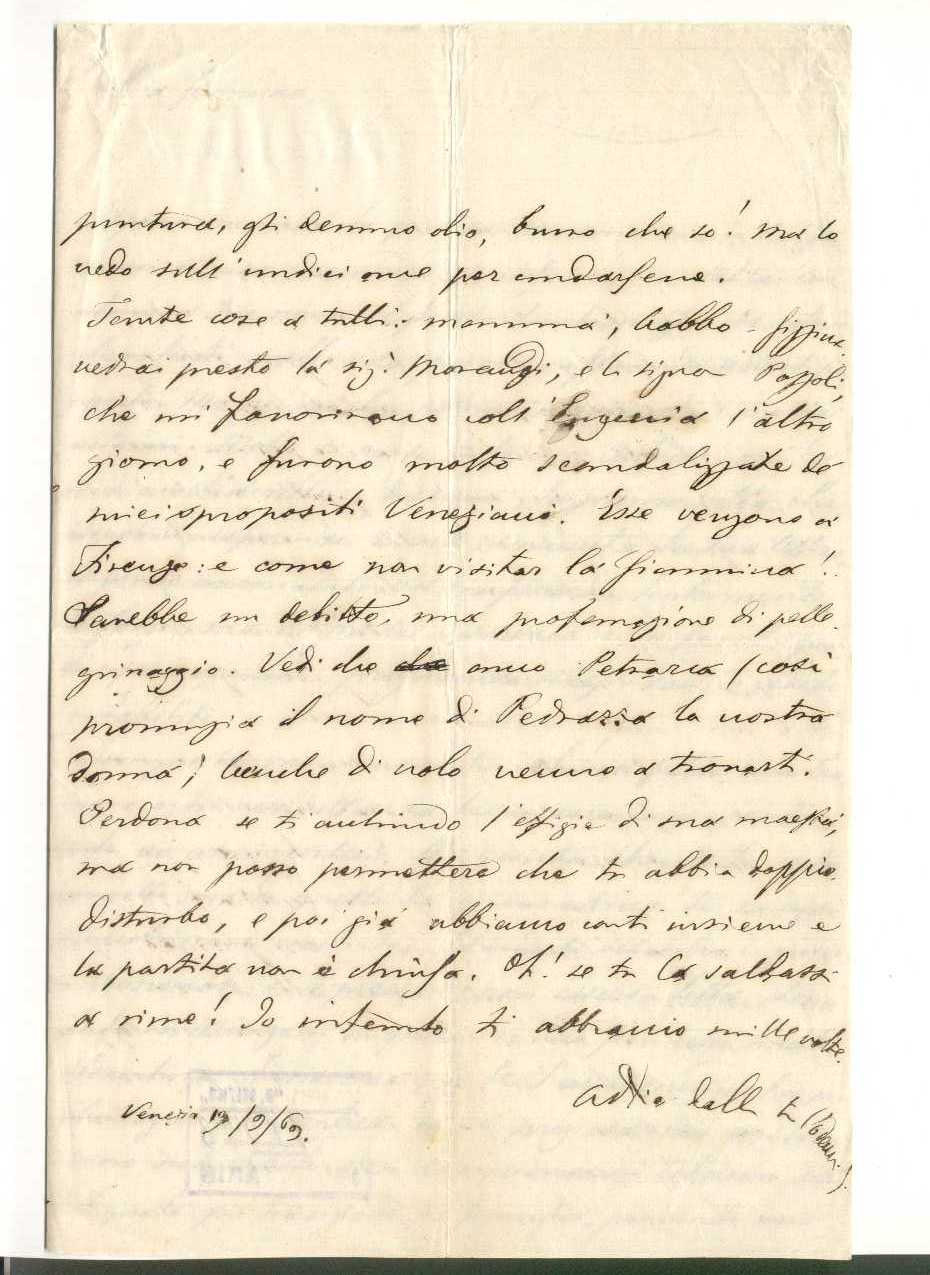 puntura, gli demmo olio, burro che so! ma lo
vedo sull'undici ore per andarsene.
Tante cose a tutti: mamma, babbo - Gigina.
vedrai presto la sigª Morandi, e la signora Pozzoli,
che mi favorirono coll'Eugenia l'altro
giorno, e furono molto scandalizzate de
miei spropositi Veneziani. Esse vengono a
Firenze: e come non visitar la Giannina!.
Sarebbe un delitto, una profanazione di pelle-
grinaggio. Vedi che anco Petrarca (così
pronunzia il nome di Pedrazza la nostra
donna) benche di volo venne a trovarti.
Perdona se ti acchiudo l'effigie di sua maestà,
ma non posso permettere che tu abbia doppio
disturbo, e poi già abbiamo conti insieme e
la partita non è chiusa. Oh! se tu la saldassi
a rime! Io intanto ti abbraccio mille volte.
Addio dalla tu
Venezia 19/9/69.